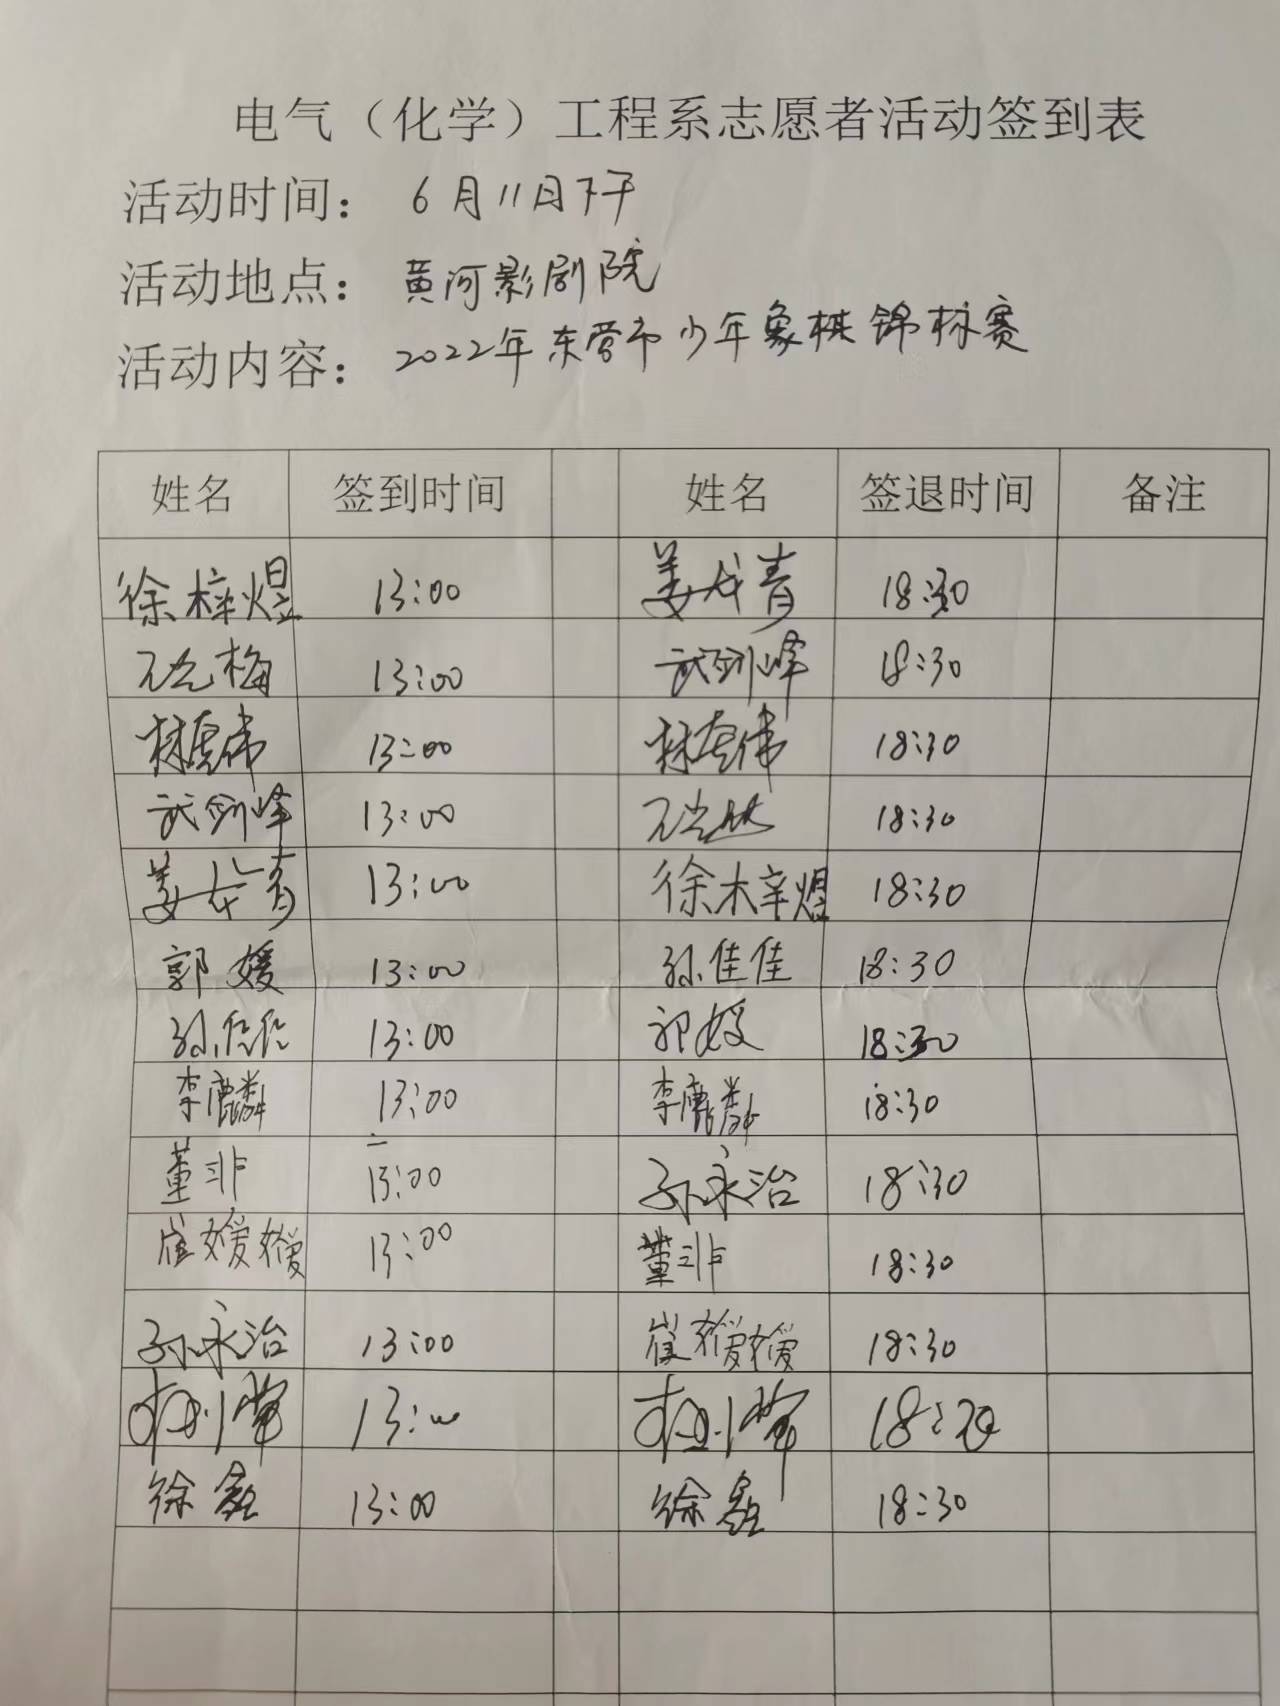 电气（化学）工程系志愿者活动签到表
活动时间： 6月11日下午
活动地点： 黄河影剧院
活动内容： 2022年东营市少年象棋锦标赛
姓名 签到时间 姓名 签退时间 备注
徐梓煜 13:00 姜成青 18:30
13:00 武剑峰 18:30
林奎伟 13:00 林奎伟 18:30
武剑峰 13:00 18:30
姜成青 13:00 徐梓煜 18:30
郭媛 13:00 孙佳佳 18:30
孙佳佳 13:00 郭媛 18:30
李麒麟 13:00 李麒麟 18:30
董非 13:00 孙永治 18:30
崔媛媛 13:00 董非 18:30
孙永治 13:00 崔媛媛 18:30
13:00 18:30
徐鑫 13:00 徐鑫 18:30